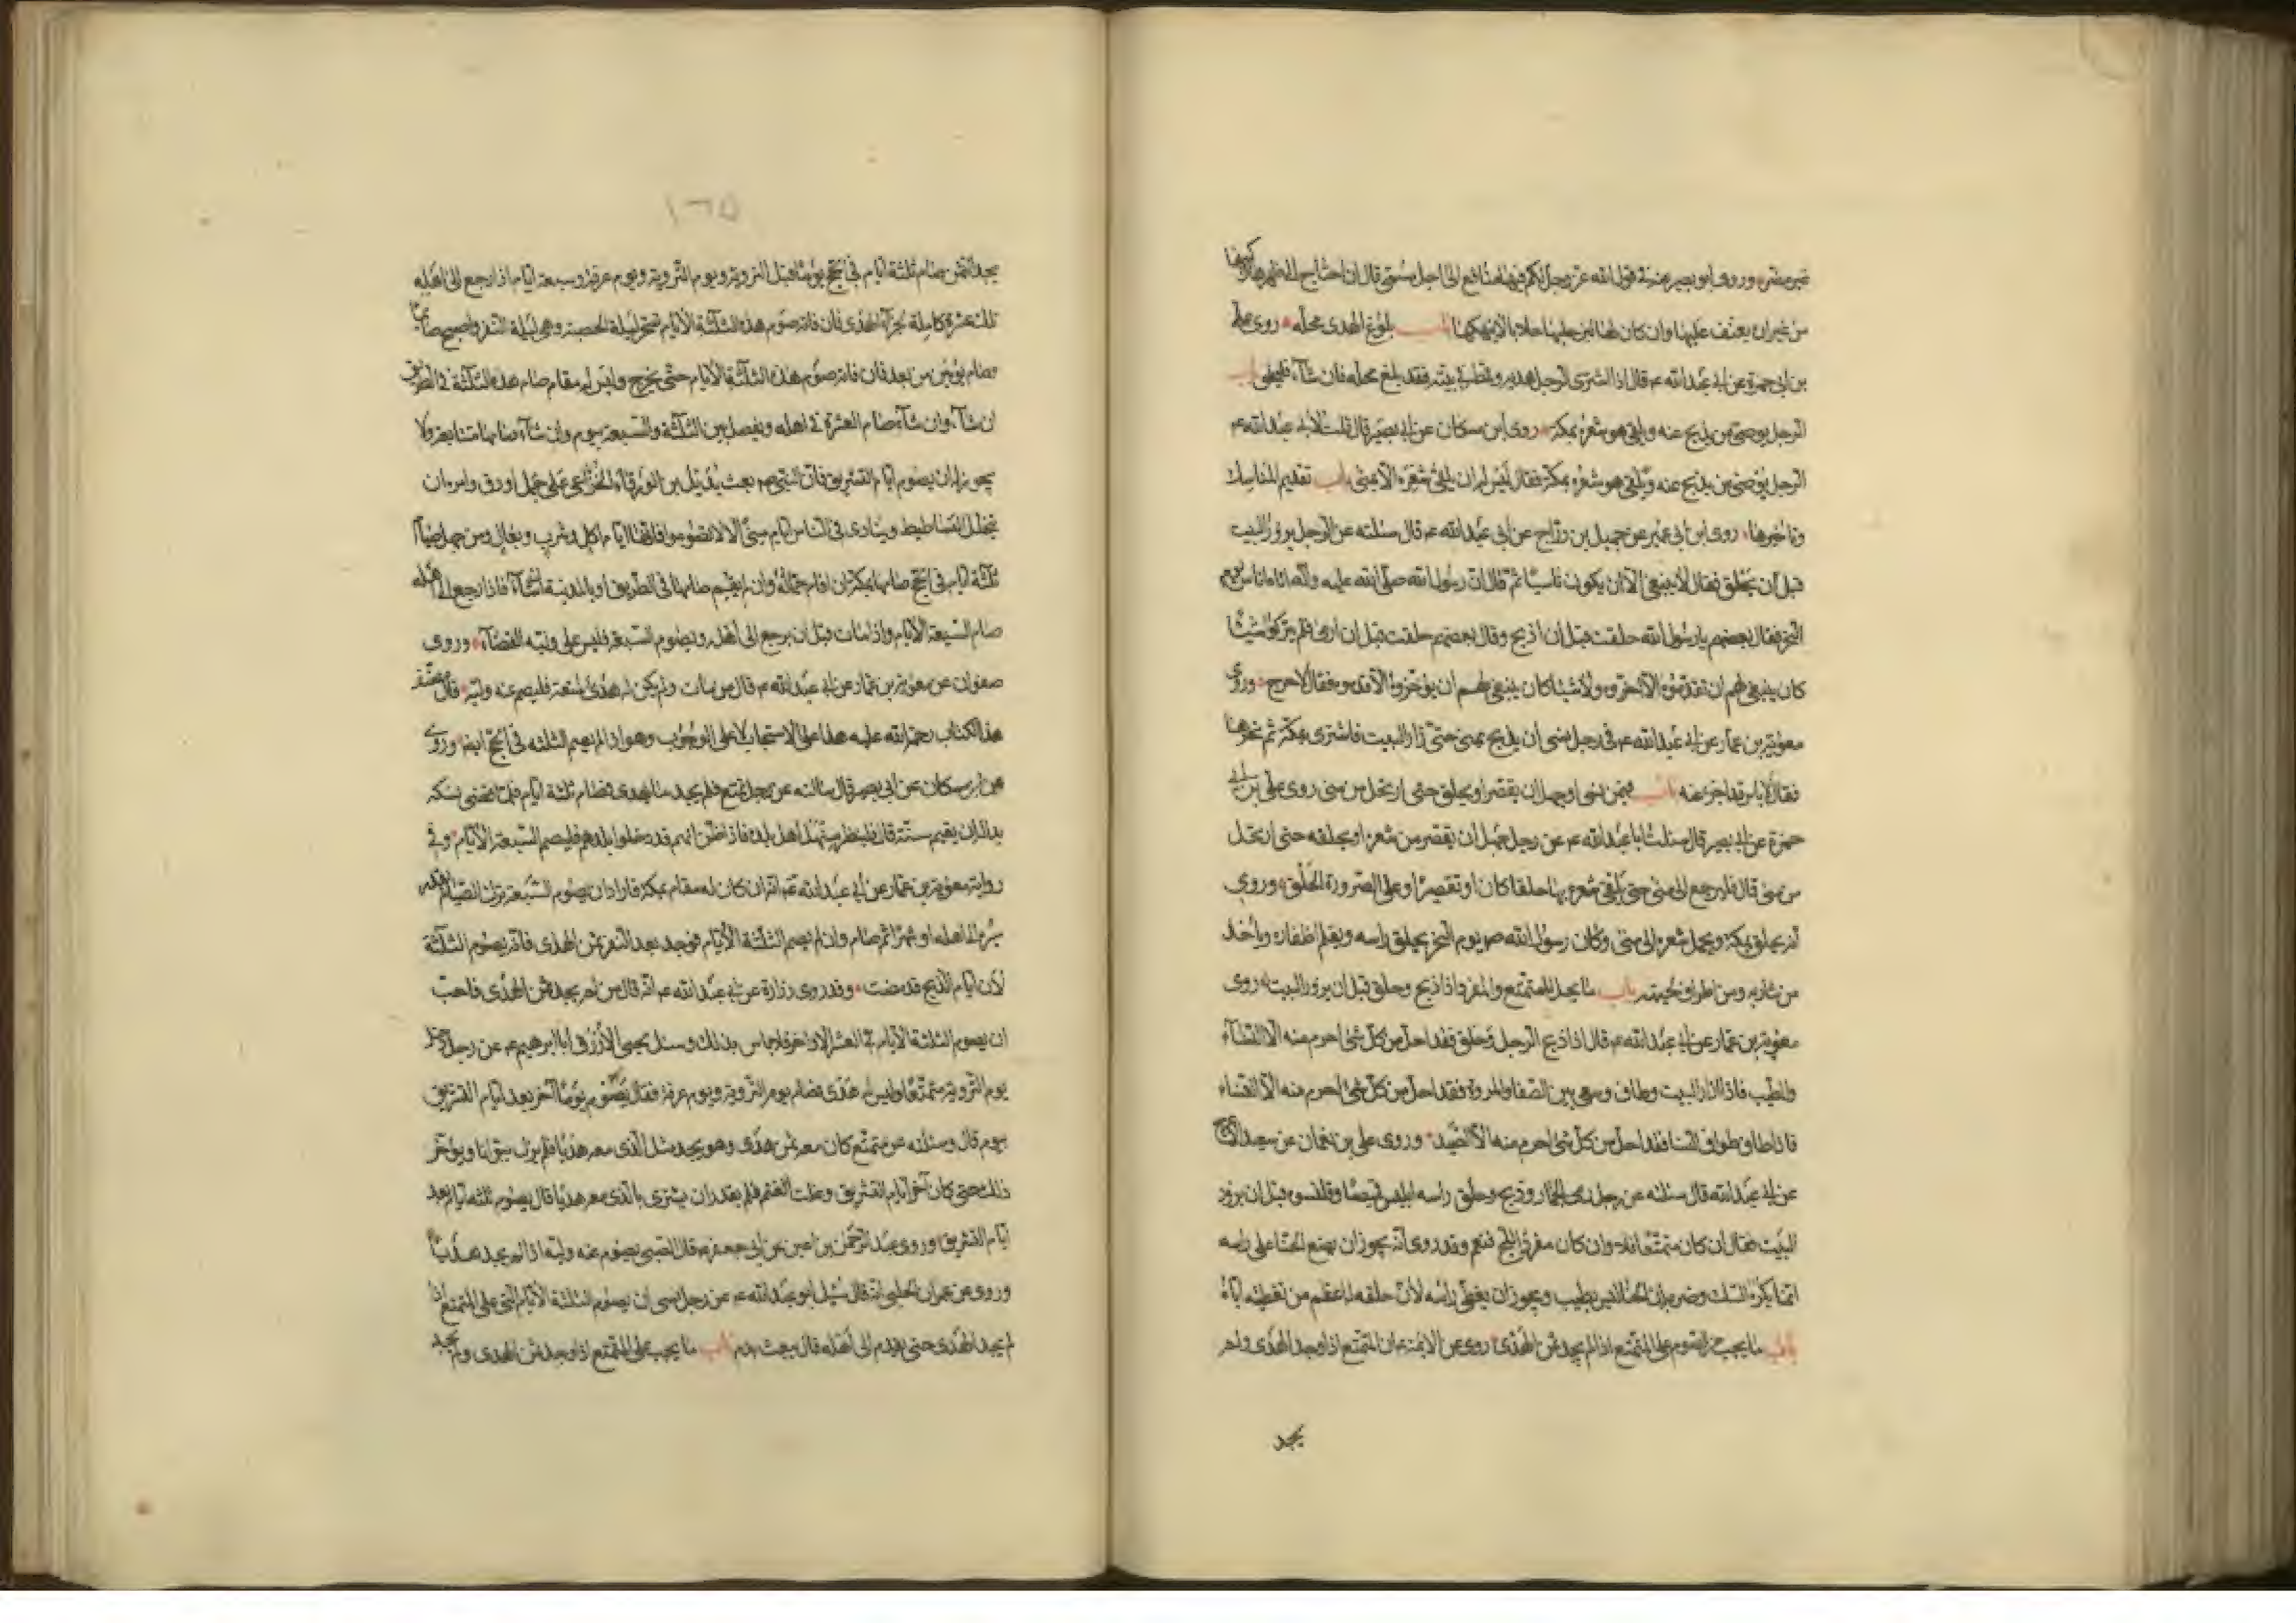 غير مضر وروى ابو بصير عنه في قول الله عز وجل لكم فيها منافع الى اجل مسمى قال ان احتاج الى ظهرها ركبها
من غير ان يعنف عليها وان كان لها لبن حلبها حلابا لا ينهكها باب بلوغ الهدى محله روى علي
بن ابي حمزة عن ابي عبد الله ع قال اذا اشترى الرجل هديه وقمطه في بيته فقد بلغ محله فان شاء فليحلق باب
الرجل يوصي من يذبح عنه ويلقي هو شعره بمكة روى ابن مسكان عن ابي بصير قال قلت لابي عبد الله ع
الرجل يوصي من يذبح عنه ويلقي هو شعره بمكة فقال ليس له ان يلقي شعره الا بمنى باب تقديم المناسك
وتاخيرها روى ابن ابي عمير عن جميل بن دراج عن ابي عبد الله ع قال سئلته عن الرجل يزور البيت
قبل ان يحلق فقال لا ينبغي الا ان يكون ناسيا ثم قال ان رسول الله صلى الله عليه وآله اتاه اناس يوم
النحر فقال بعضهم يا رسول الله حلقت قبل ان اذبح وقال بعضهم حلقت قبل ان ارمى فلم يتركوا شيئا
كان ينبغي لهم ان يقدموه الا اخروه ولا شيئا كان ينبغي لهم ان يؤخروه الا قدموه فقال لا حرج وروى
معوية بن عمار عن ابي عبد الله ع في رجل نسى ان يذبح بمنى حتى زار البيت فاشترى بمكة ثم نحرها
فقال لا باس قد اجزء عنه باب فيمن نسى او جهل ان يقصر او يحلق حتى ارتحل من منى روى علي بن ابي
حمزة عن ابي بصير قال سئلت ابا عبد الله ع عن رجل جهل ان يقصر من شعره او يحلقه حتى ارتحل
من منى قال فليرجع الى منى حتى يلقى شعره بها حلقا كان او تقصيرا وعلى الصرورة الحلق وروى
انه يحلق بمكة ويحمل شعره الى منى وكان رسول الله ص يوم النحر يحلق راسه ويقلم اظفاره وياخذ
من شاربه ومن اطراف لحيته باب ما يحل للمتمتع والمفرد اذا ذبح وحلق قبل ان يزور البيت روى
معوية بن عمار عن ابي عبد الله ع قال اذا ذبح الرجل وحلق فقد احل من كل شئ احرم منه الا النساء
والطيب فاذا زار البيت وطاف وسعى بين الصفا والمروة فقد احل من كل شئ احرم منه الا النساء
فاذا طاف طواف النسا فقد احل من كل شئ احرم منه الا الصيد وروى علي بن نعمان عن سعيد الاعرج
عن ابي عبد الله قال سئلته عن رجل رمى الجمار وذبح وحلق راسه ايلبس قميصا وقلنسوه قبل ان يزور
البيت فقال ان كان متمتعا فلا وان كان مفردا للحج فنعم وقد روى انه يجوز ان يضع الحنا على راسه
انما يكره السك وضربه ان الحنا ليس بطيب ويجوز ان يغطى راسه لان حلقه له اعظم من تغطيته اياه
باب ما يجب من الصوم على المتمتع اذا لم يجد ثمن الهدى روى عن الائمة ع ان المتمتع اذا وجد الهدى ولم
يجد
١٦٥
يجد الثمن صام ثلثة ايام في الحج يوما قبل التروية ويوم التروية ويوم عرفة وسبعة ايام اذا رجع الى اهله
تلك عشرة كاملة لجزاء الهدى فان فاته صوم هذه الثلثة الايام تسحر ليلة الحصبة وهي ليلة النفر واصبح صائما
وصام يومين من بعد فان فاته صوم هذه الثلثة الايام حتى يخرج وليس له مقام صام هذه الثلثة في الطريق
ان شاء وان شاء صام العشرة في اهله ويفصل بين الثلثة والسبعة بيوم وان شاء صامها متتابعة ولا
يجوز له ان يصوم ايام التشريق فان النبي ص بعث بديل بن الورقاء الخزاعي على جمل اورق وامره ان
يتخلل الفساطيط وينادى في الناس ايام منى الا لا تصوموا فانها ايام اكل وشرب وبعال ومن جهل صيام
ثلثة ايام في الحج صامها بمكة ان اقام جماله وان لم يقم صامها في الطريق او بالمدينة ان شاء فاذا رجع الى اهله
صام السبعة الايام واذا مات قبل ان يرجع الى اهله ويصوم السبعة فليس على وليه القضاء وروى
صفوان عن معوية بن عمار عن ابي عبد الله ع قال من مات ولم يكن له هدى لمتعته فليصم عنه وليه قال مصنف
هذا الكتاب رحمة الله عليه هذا على الاستحباب لا على الوجوب وهو اذا لم يصم الثلثه في الحج ايضا وروى
عن ابن مسكان عن ابي بصير قال سالته عن رجل تمتع فلم يجد ما يهدى فصام ثلثة ايام فلما قضى نسكه
بدا له ان يقيم سنة قال فلينظر منهل اهل بلده فاذا ظن انهم قد دخلوا بلدهم فليصم السبعة الايام وفي
رواية معوية بن عمار عن ابي عبد الله ع انه ان كان له مقام بمكة فاراد ان يصوم السبعة ترك الصيام بقدر
سيره الى اهله او شهرا ثم صام وان لم يصم الثلثة الايام فوجد بعد النفر ثمن الهدى فانه يصوم الثلثة
لان ايام الذبح قد مضت وقد روى زرارة عن ابي عبد الله ع انه قال من لم يجد ثمن الهدى فاحب
ان يصوم الثلثة الايام في العشر الاواخر فلا باس بذلك وسئل يحيى الازرق ابا ابرهيم ع عن رجل دخل
يوم التروية متمتعا وليس له هدى فصام يوم التروية ويوم عرفة فقال يصوم يوما آخر بعد ايام التشريق
بيوم قال وسئلته عن متمتع كان معه ثمن هدى وهو يجد مثل الذى معه هديا فلم يزل يتوانا ويؤخر
ذلك حتى كان آخر ايام التشريق وغلت الغنم فلم يقدر ان يشترى بالذى معه هديا قال يصوم ثلثه ايام بعد
ايام التشريق وروى عبد الرحمن بن اعين عن ابي جعفر ع قال الصبى يصوم عنه وليه اذا لم يجد هديا
وروى عن عمران الحلبي انه قال سئل ابو عبد الله ع عن رجل نسى ان يصوم الثلثة الايام التي على المتمتع اذا
لم يجد الهدى حتى يقدم الى اهله قال يبعث بدم باب ما يجب على المتمتع اذا وجد ثمن الهدى ولم يجد